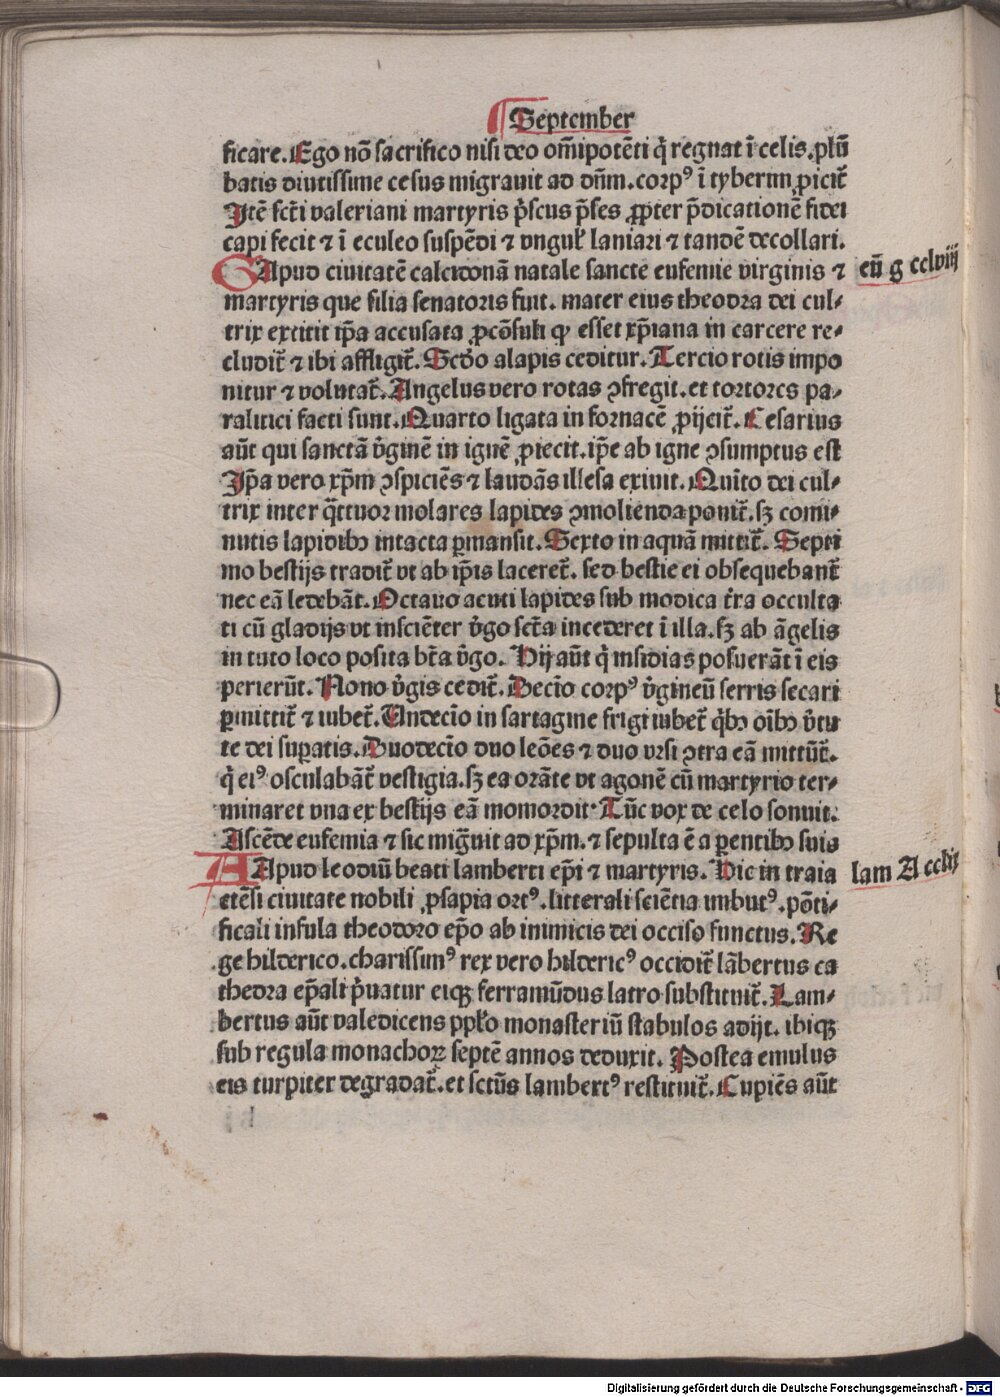 September
ficare. Ego nō sacrifico nisi deo om̄ipotēti q̇ regnat ī celis. plū
batis diutissime cesus migrauit ad dn̄m. corpꝰ ī tyberim ꝓicit᷑
Itē sct̄i valeriani martyris p̄scus p̄ses ꝓpter p̄dicationē fidei
capi fecit ⁊ ī eculeo suspēdi ⁊ vngul᷑ laniari ⁊ tandē decollari.
Apud ciuitatē calcidonā natale sancte eufemie virginis ⁊
eū g cclviij
martyris que filia senatoris fuit. mater eius theodra dei cul⸗
trix extitit ip̄a accusata ꝓcōsuli ꝙ esset xp̄iana in carcere re⸗
cludit᷑ ⁊ ibi affligit᷑. Scd̄o alapis ceditur. Tercio rotis impo
nitur ⁊ volutat᷑. Angelus vero rotas ꝯfregit. et tortores pa⸗
ralitici facti sunt. Quarto ligata in fornacē ꝓijcit᷑. Cesarius
aūt qui sanctā v̇ginē in ignē ꝓiecit. ip̄e ab igne ꝯsumptus est
Ip̄a vero xp̄m ꝯspiciēs ⁊ laudās illesa exiuit. Quīto dei cul⸗
trix inter q̄ttuor molares lapides ꝯmolienda ponit᷑. sꝫ comi⸗
nutis lapidibꝰ intacta ꝑmansit. Sexto in aquā mittit᷑. Septi
mo bestijs tradit᷑ vt ab ip̄is laceret᷑. sed bestie ei obsequebant᷑
nec eā ledebāt. Octauo acuti lapides sub modica t̄ra occulta
ti cū gladijs vt insciēter v̇go sct̄a incederet ī illa. sꝫ ab āgelis
in tuto loco posita bt̄a v̇go. Hij aūt q̇ insidias posuerāt ī eis
perierūt. Nono v̇gis cedit᷑. Decīo corpꝰ v̇gineū serris secari
ꝑmittit᷑ ⁊ iubet᷑. Undecīo in sartagine frigi iubet᷑ q̇bꝰ oībꝰ v̇tu
te dei suꝑatis. Duodecīo duo leōes ⁊ duo vrsi ꝯtra eā mittūt᷑.
q̇ eiꝰ osculabāt᷑ vestigia. sꝫ ea orāte vt agonē cū martyrio ter⸗
minaret vna ex bestijs eā momordit. Tūc vox de celo sonuit.
Ascēde eufemia ⁊ sic mig̅uit ad xp̄m. ⁊ sepulta ē a parentibꝰ suis
Apud leodiū beati lamberti ep̄i ⁊ martyris. Hic in traia
lam A cclix
etēsi ciuitate nobili ꝓsapia ortꝰ. litterali sciētia imbutꝰ. pōti⸗
ficali insula theodoro ep̄o ab inimicis dei occiso functus. Re
ge hilderico. charissimꝰ rex vero hildericꝰ occidit᷑ lābertus ca
thedra ep̄ali ṗuatur eiqꝫ ferramūdus latro substituit᷑. Lam⸗
bertus aūt valedicens ppl̄o monasteriū stabulos adijt. ibiqꝫ
sub regula monachoꝝ septē annos deduxit. Postea emulus
eis turpiter degradat᷑. et sctūs lambertꝰ restituit᷑. Cupiēs aūt
Digitalisierung gefördert durch die Deutsche Forschungsgemeinschaft - DFG